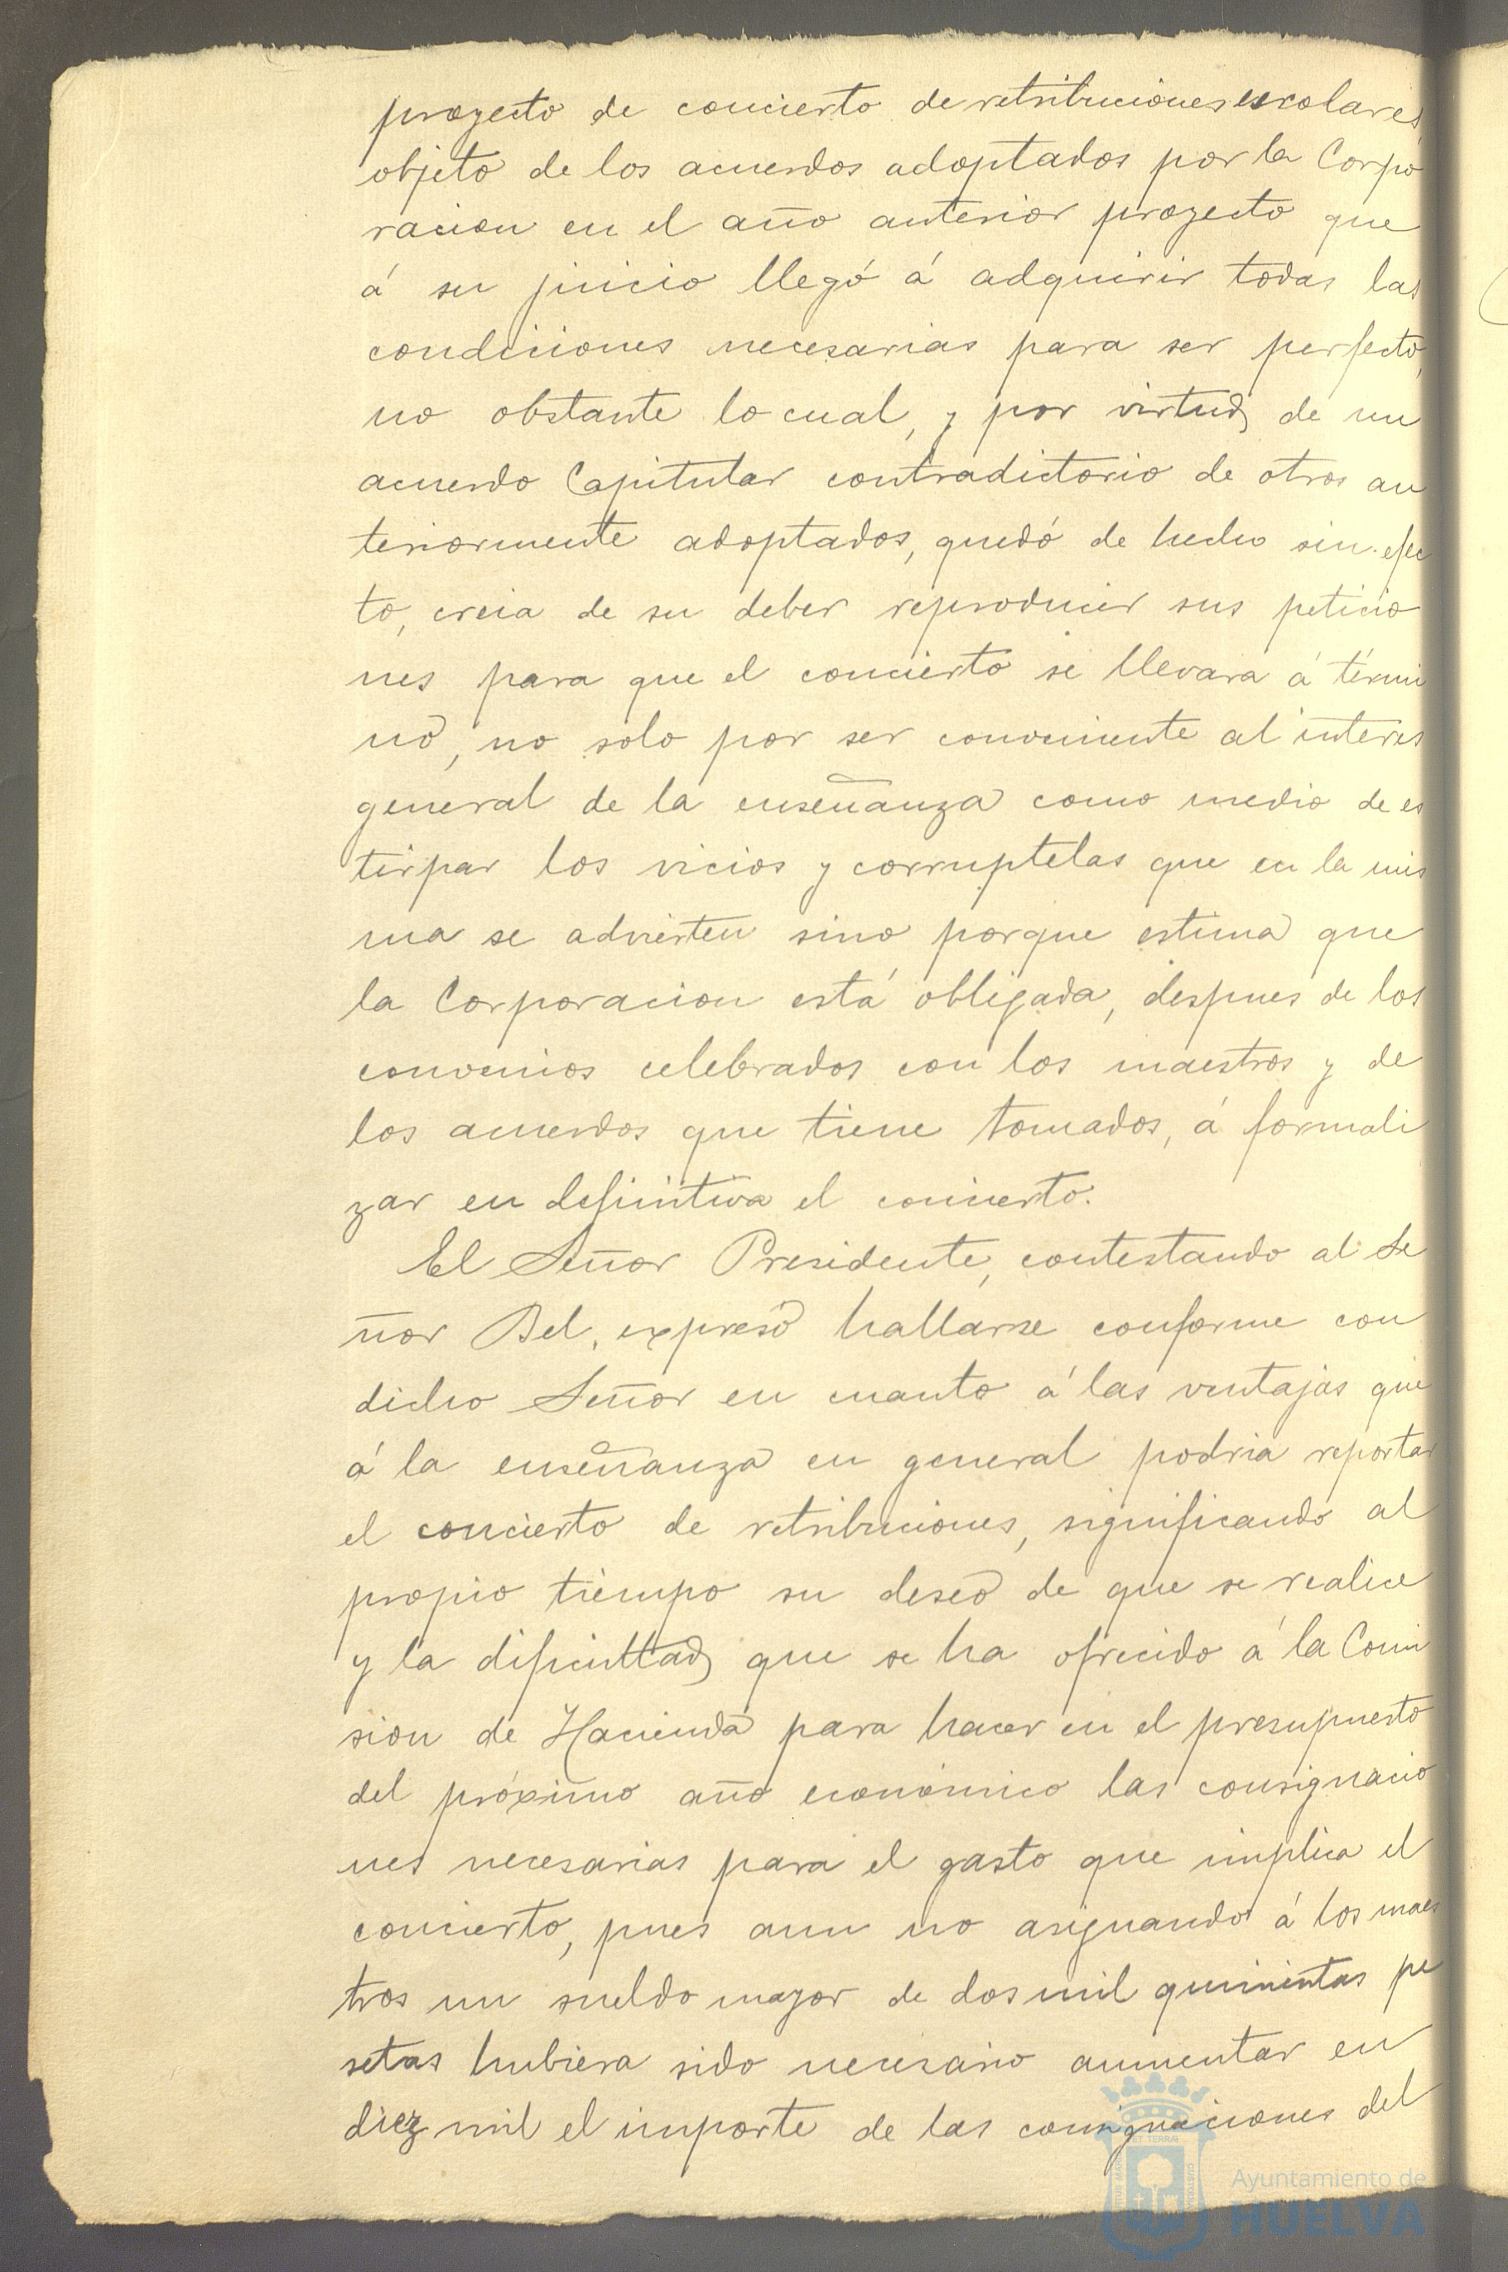 proyecto de concierto de retribuciones escolares
objeto de los acuerdos adoptados por la Corpo
racion en el año anterior proyecto que
á su juicio llegó á adquirir todas las
condiciones necesarias para ser perfecto,
no obstante lo cual, y por virtud de un
acuerdo Capitular contradictorio de otros an
teriormente adoptados, quedó de hecho sin efec
to, creia de su deber reproducir sus peticio
nes para que el concierto se llevara á térmi
no, no solo por ser conveniente al interes
general de la enseñanza como medio de es
tirpar los vicios y corruptelas que en la mis
ma se advierten sino porque estima que
la Corporacion está obligada, despues de los
convenios celebrados con los maestros y de
los acuerdos que tiene tomados, á formali
zar en definitiva el concierto.
El Señor Presidente, contestando al Se
ñor Bel, expresó hallarse conforme con
dicho Señor en cuanto á las ventajas que
á la enseñanza en general podria reportar
el concierto de retribuciones, significando al
propio tiempo su deseo de que se realice
y la dificultad que se ha ofrecido á la Comi
sion de Hacienda para hacer en el presupuesto
del próximo año económico las consignacio
nes necesarias para el gasto que implica el
concierto, pues aun no asignando á los maes
tros un sueldo mayor de dos mil quinientas pe
setas hubiera sido necesario aumentar en
diez mil el importe de las consignaciones del
Ayuntamiento de
HUELVA